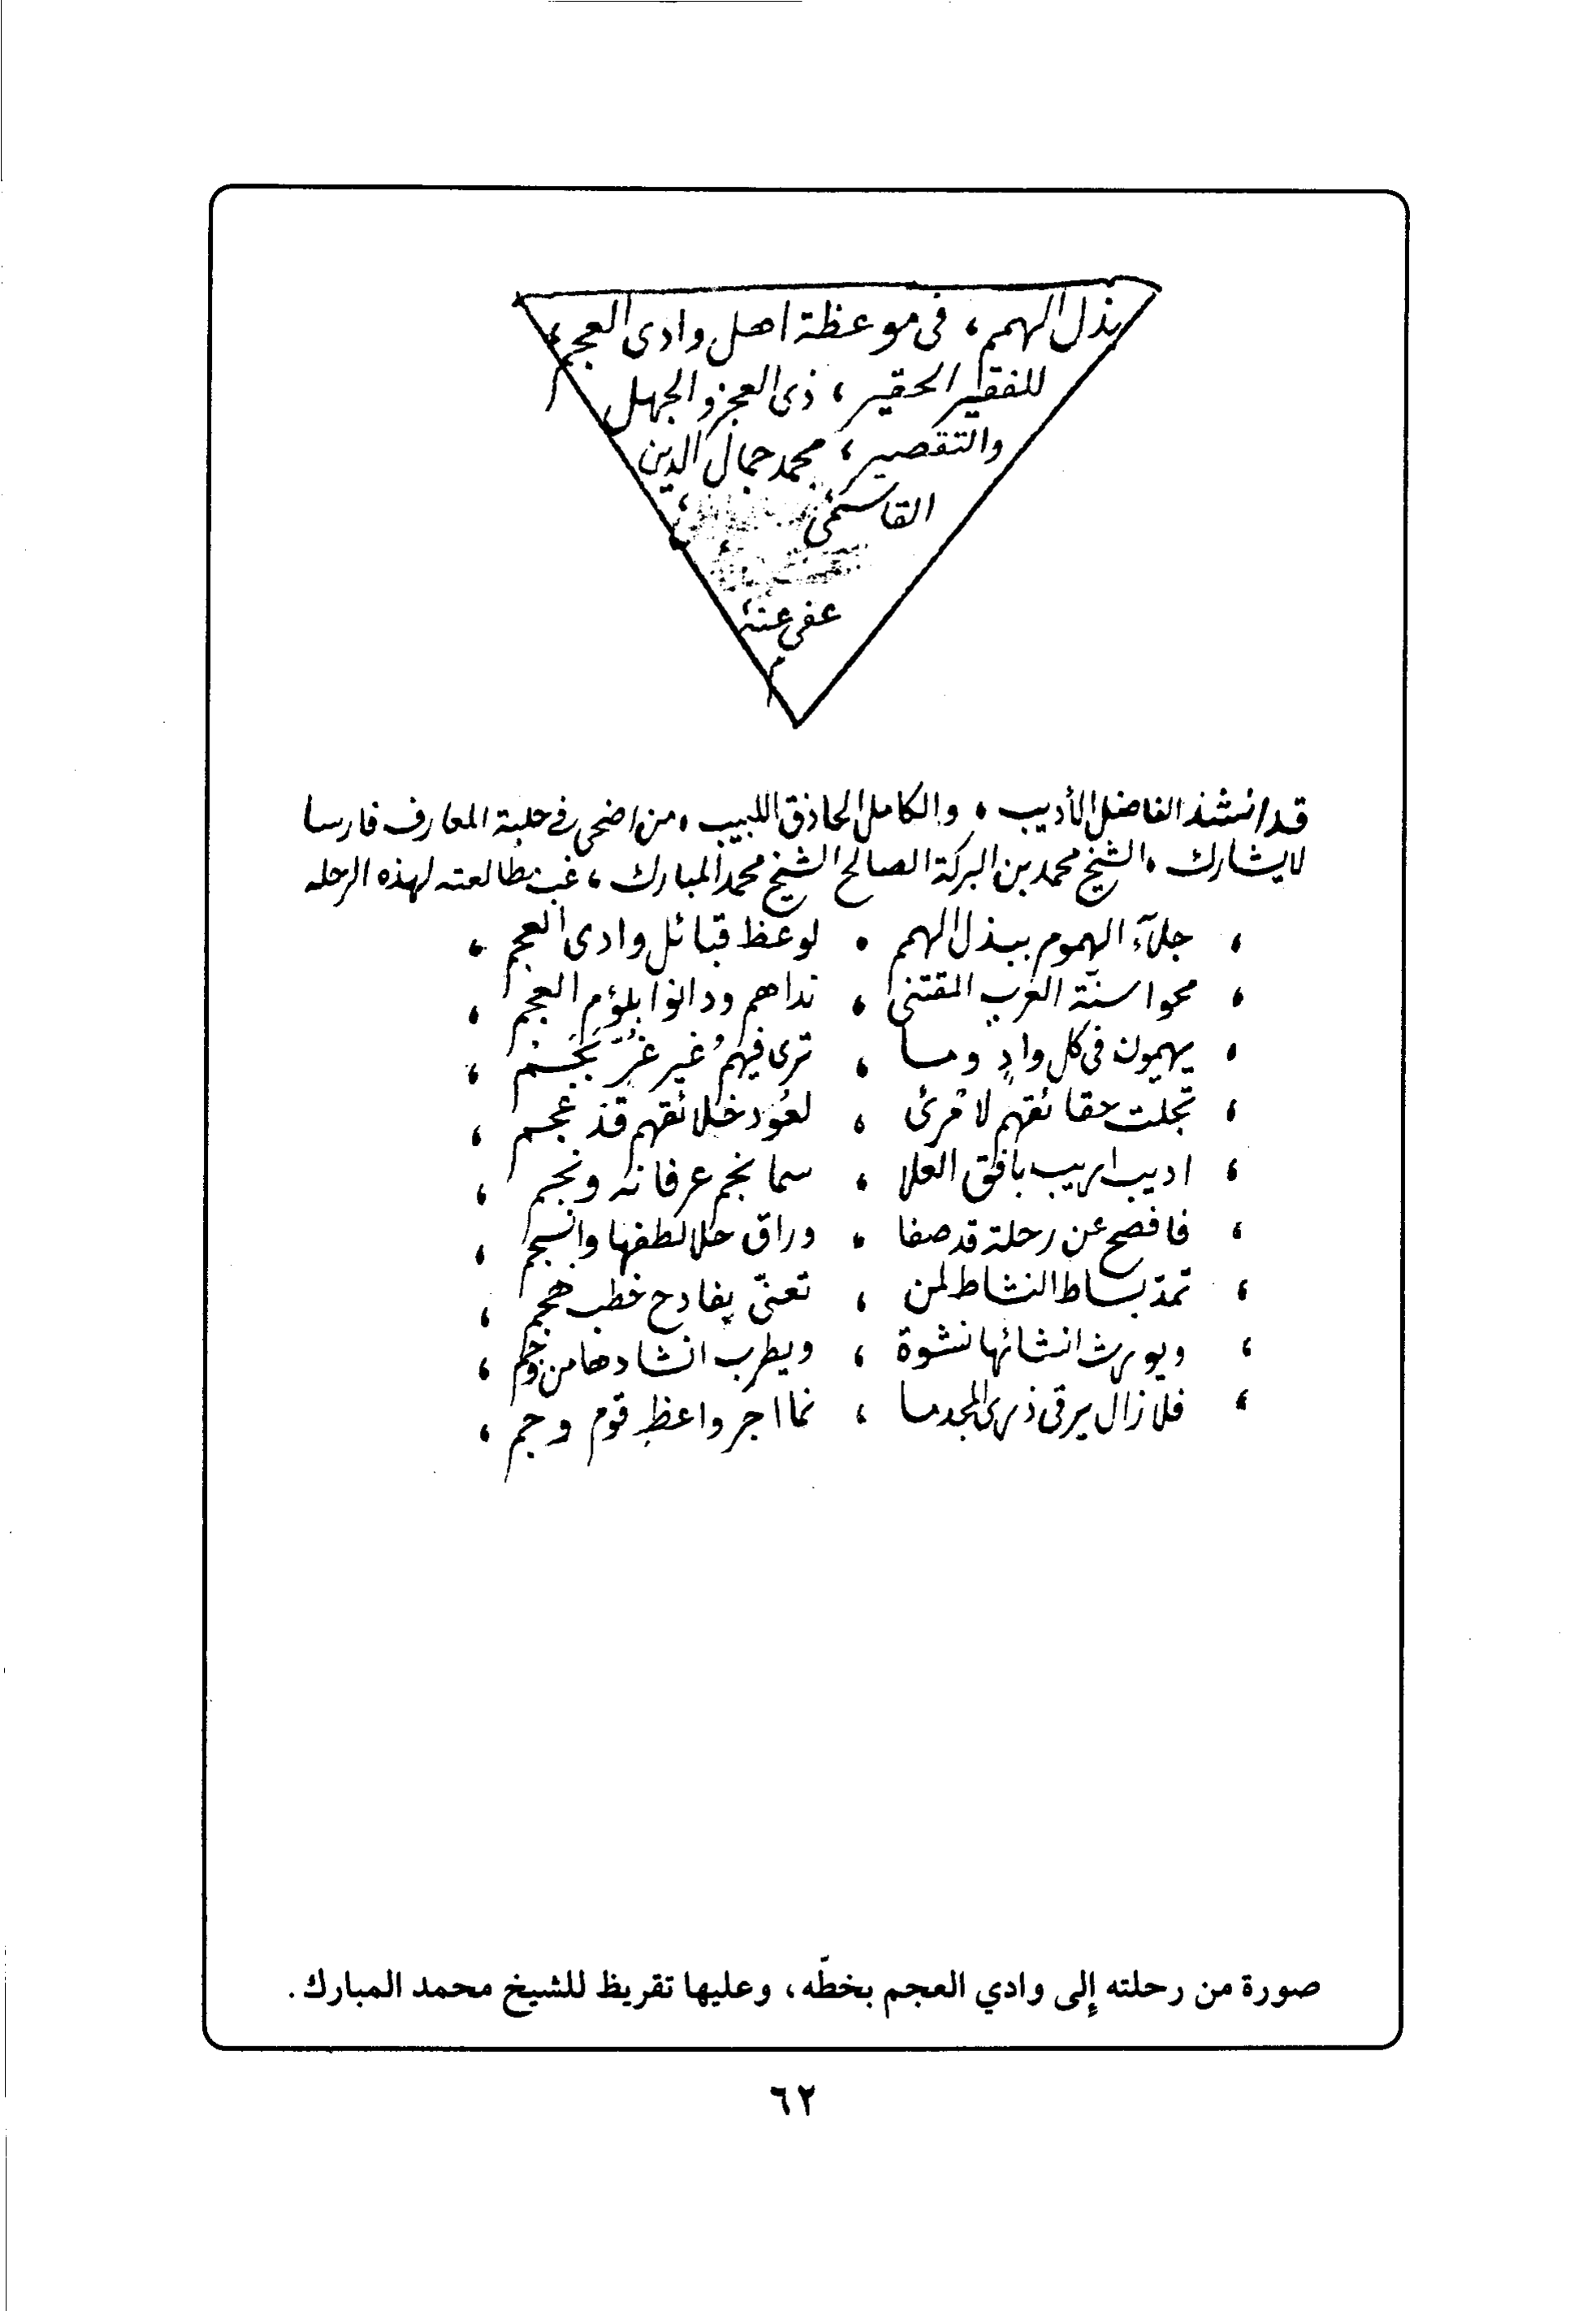 بذل الهمم، فى موعظة اهل وادى العجم
للفقير الحقير، ذى العجز والجهل
والتقصير، محمد جمال الدين
القاسمى
عفى عنه
م
قد انشد الفاضل الأديب، والكامل الحاذق اللبيب، من اضحى فى حلبة المعارف فارسا
لايشارك، الشيخ محمد بن البركة الصالح الشيخ محمد المبارك، غب مطالعته لهذه الرحله
، جلآء الهموم ببذل الهمم ، لوعظ قبائل وادى العجم ،
، محوا سنّة العرب المقتنى ، نداهم ودانوا بلؤم العجم ،
، يهيمون فى كل وادٍ وما ، ترى فيهمُ غير غُرّ نجم ،
، تجلت حقائقهم لامرئ ، لعُود خلائقهم قد عجم ،
، اديب اريب بافق العلا ، سما نجم عرفانه ونجم ،
، فافصح عن رحلة قد صفا ، وراق حلا لطفها وانسجم ،
، تمدّ بساط النشاط لمن ، تعنّى بفادح خطب هجم ،
، ويورث انشائها نشوة ، ويطرب انشادها من وجم ،
، فلازال يرقى ذرى المجد ما ، نما اجر واعظِ قوم وجم ،
صورة من رحلته إلى وادي العجم بخطّه، وعليها تقريظ للشيخ محمد المبارك.
٦٢